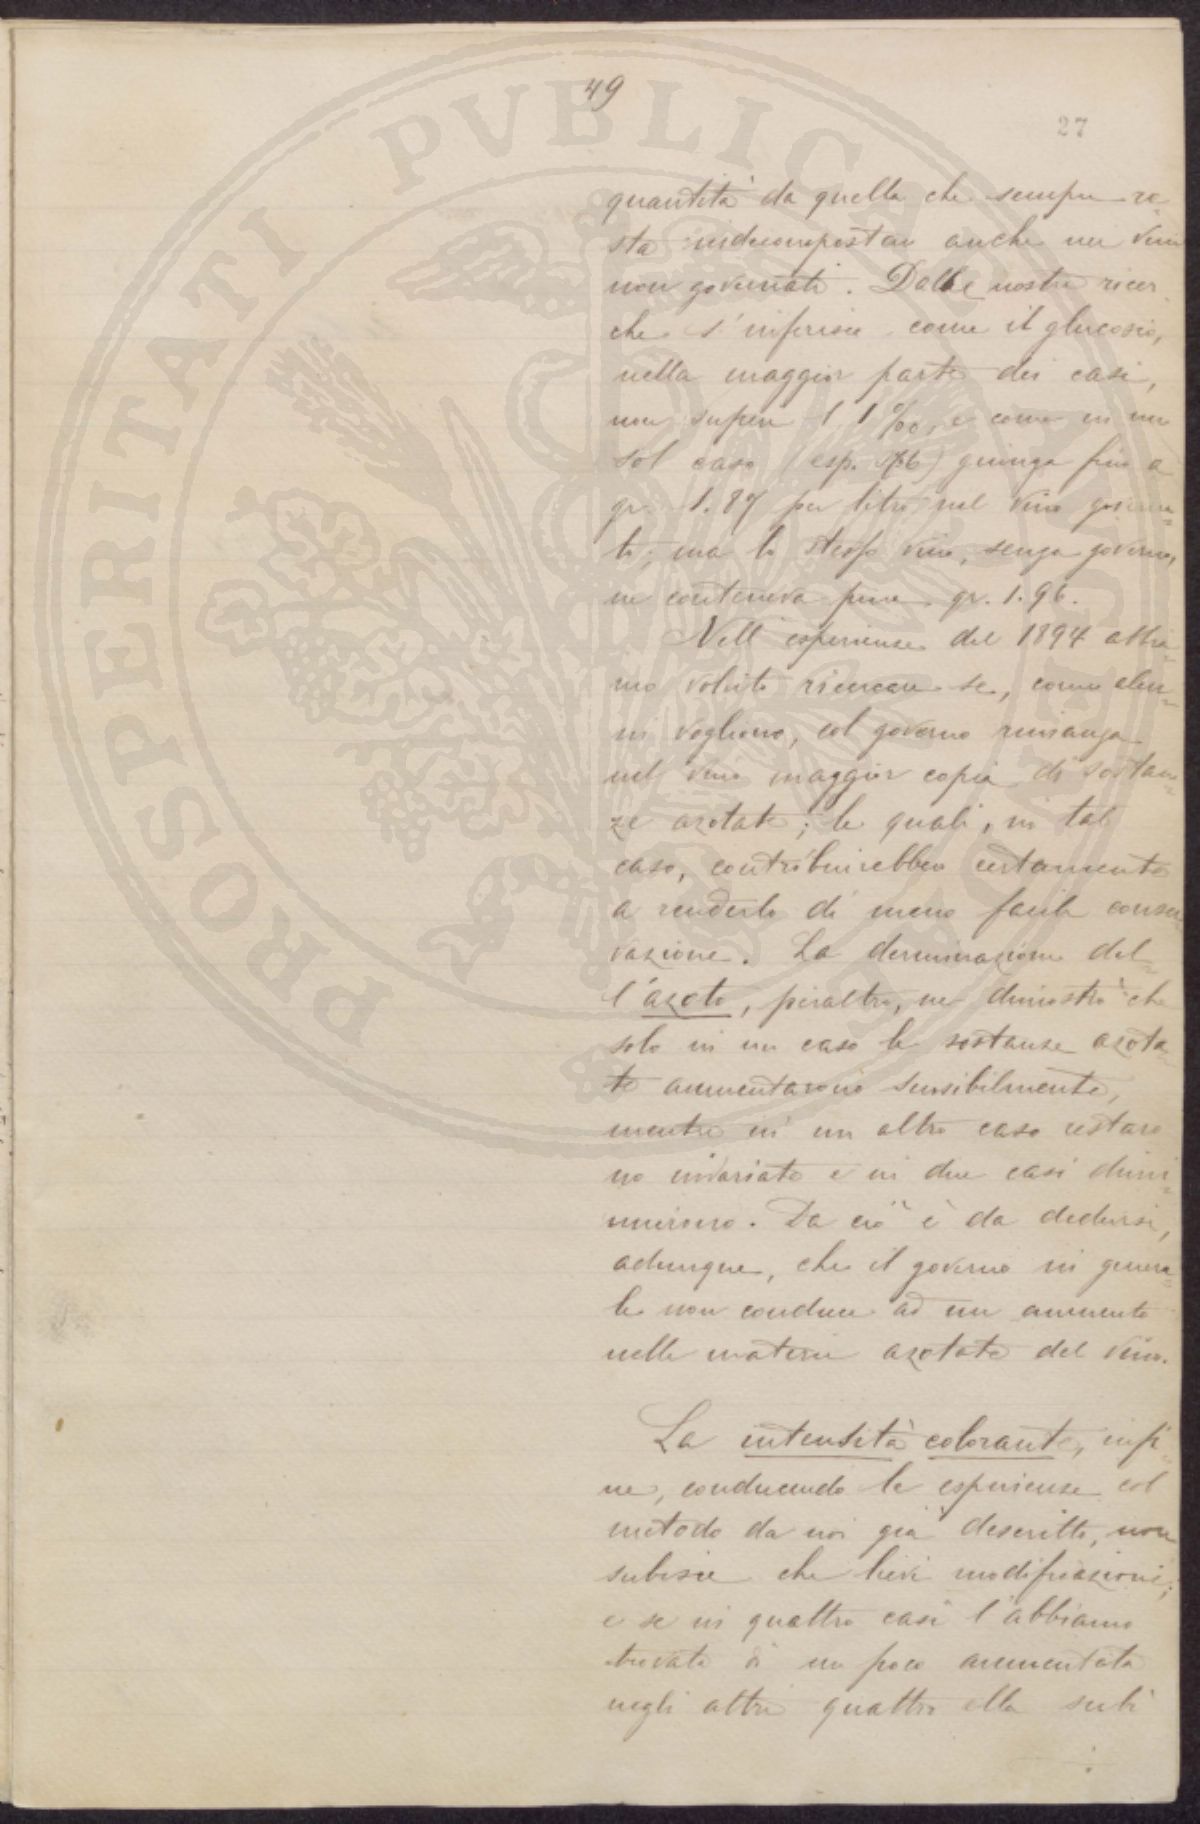 49
27
PROSPERITATI PVBLICAE
quantità da quella che sempre re-
sta indecomposta anche nei vini
non governati. Dalle nostre ricer-
che s'inferisce come il glucosio,
nella maggior parte dei casi,
non superi l' 1 ‰, e come in un
sol caso (esp. ) giunga fino a
gr. 1.87 per litro nel vino governa-
to; ma lo stesso vino, senza governo,
ne conteneva pure gr. 1.96.
Nell'esperienze del 1894 abbia-
mo voluto ricercare se, come alcu-
ni vogliono, col governo rimanga
nel vino maggior copia di sostan-
ze azotate; le quali, in tal
caso, contribuirebbero certamente
a renderlo di meno facile conser
vazione. La derminazione del-
l'azoto, peraltro, ne dimostrò che
solo in un caso le sostanze azota-
te aumentarono sensibilmente,
mentre in un altro caso restaro
no invariate e in due casi dimi-
nuirono. Da ciò è da dedursi,
adunque, che il governo in genera-
le non conduce ad un aumento
nelle materie azotate del vino.
La intensità colorante, infi-
ne, conducendo le esperienze col
metodo da noi già descritto, non
subisce che lievi modificazioni;
e se in quattro casi l'abbiamo
trovata di un poco aumentata
negli altri quattro ella subì